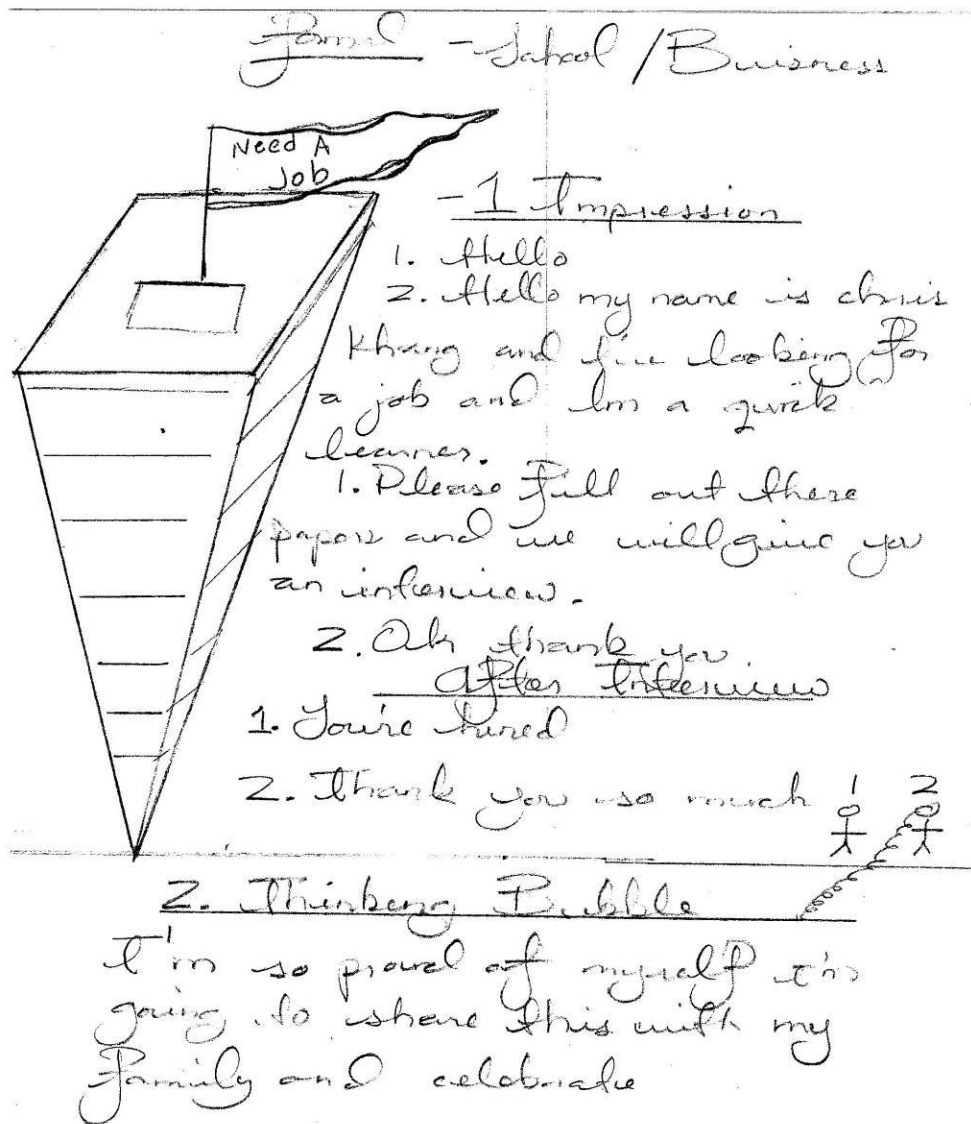 Formal - School / Buisness
Need A
Job
- 1 Impression
1. Hello
2. Hello my name is chris
Khang and I'm looking for
a job and Im a quick
learner.
1. Please fill out there
papers and we will give you
an interview.
2. Ok thank you
After Interview
1. You're hired
2. Thank you so much
1 2
2. Thinking Bubble
I'm so proud of myself I'm
going to share this with my
family and celebrate